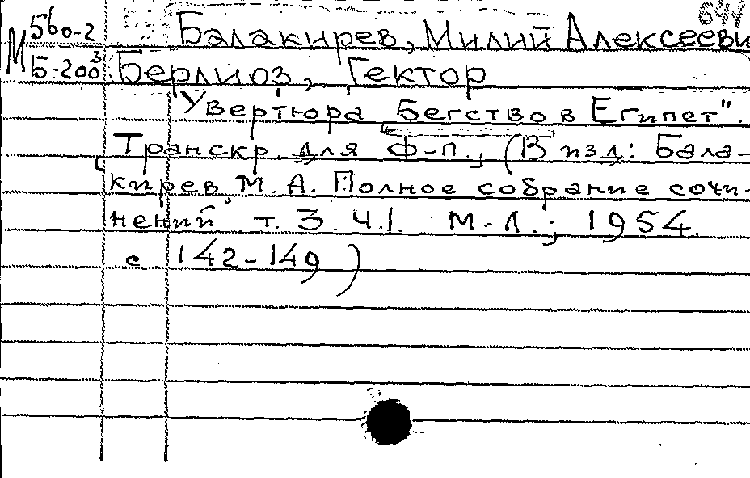 644
М 560-2 Балакирев, Милий Алексееви
Б-200³ Берлиоз, Гектор
Увертюра "Бегство в Египет".
Транскр. для ф-п., (В изд: Бала-
кирев, М.А. Полное собрание сочи-
нений т. 3 ч.1. М.-Л.; 1954.
с 142-149)